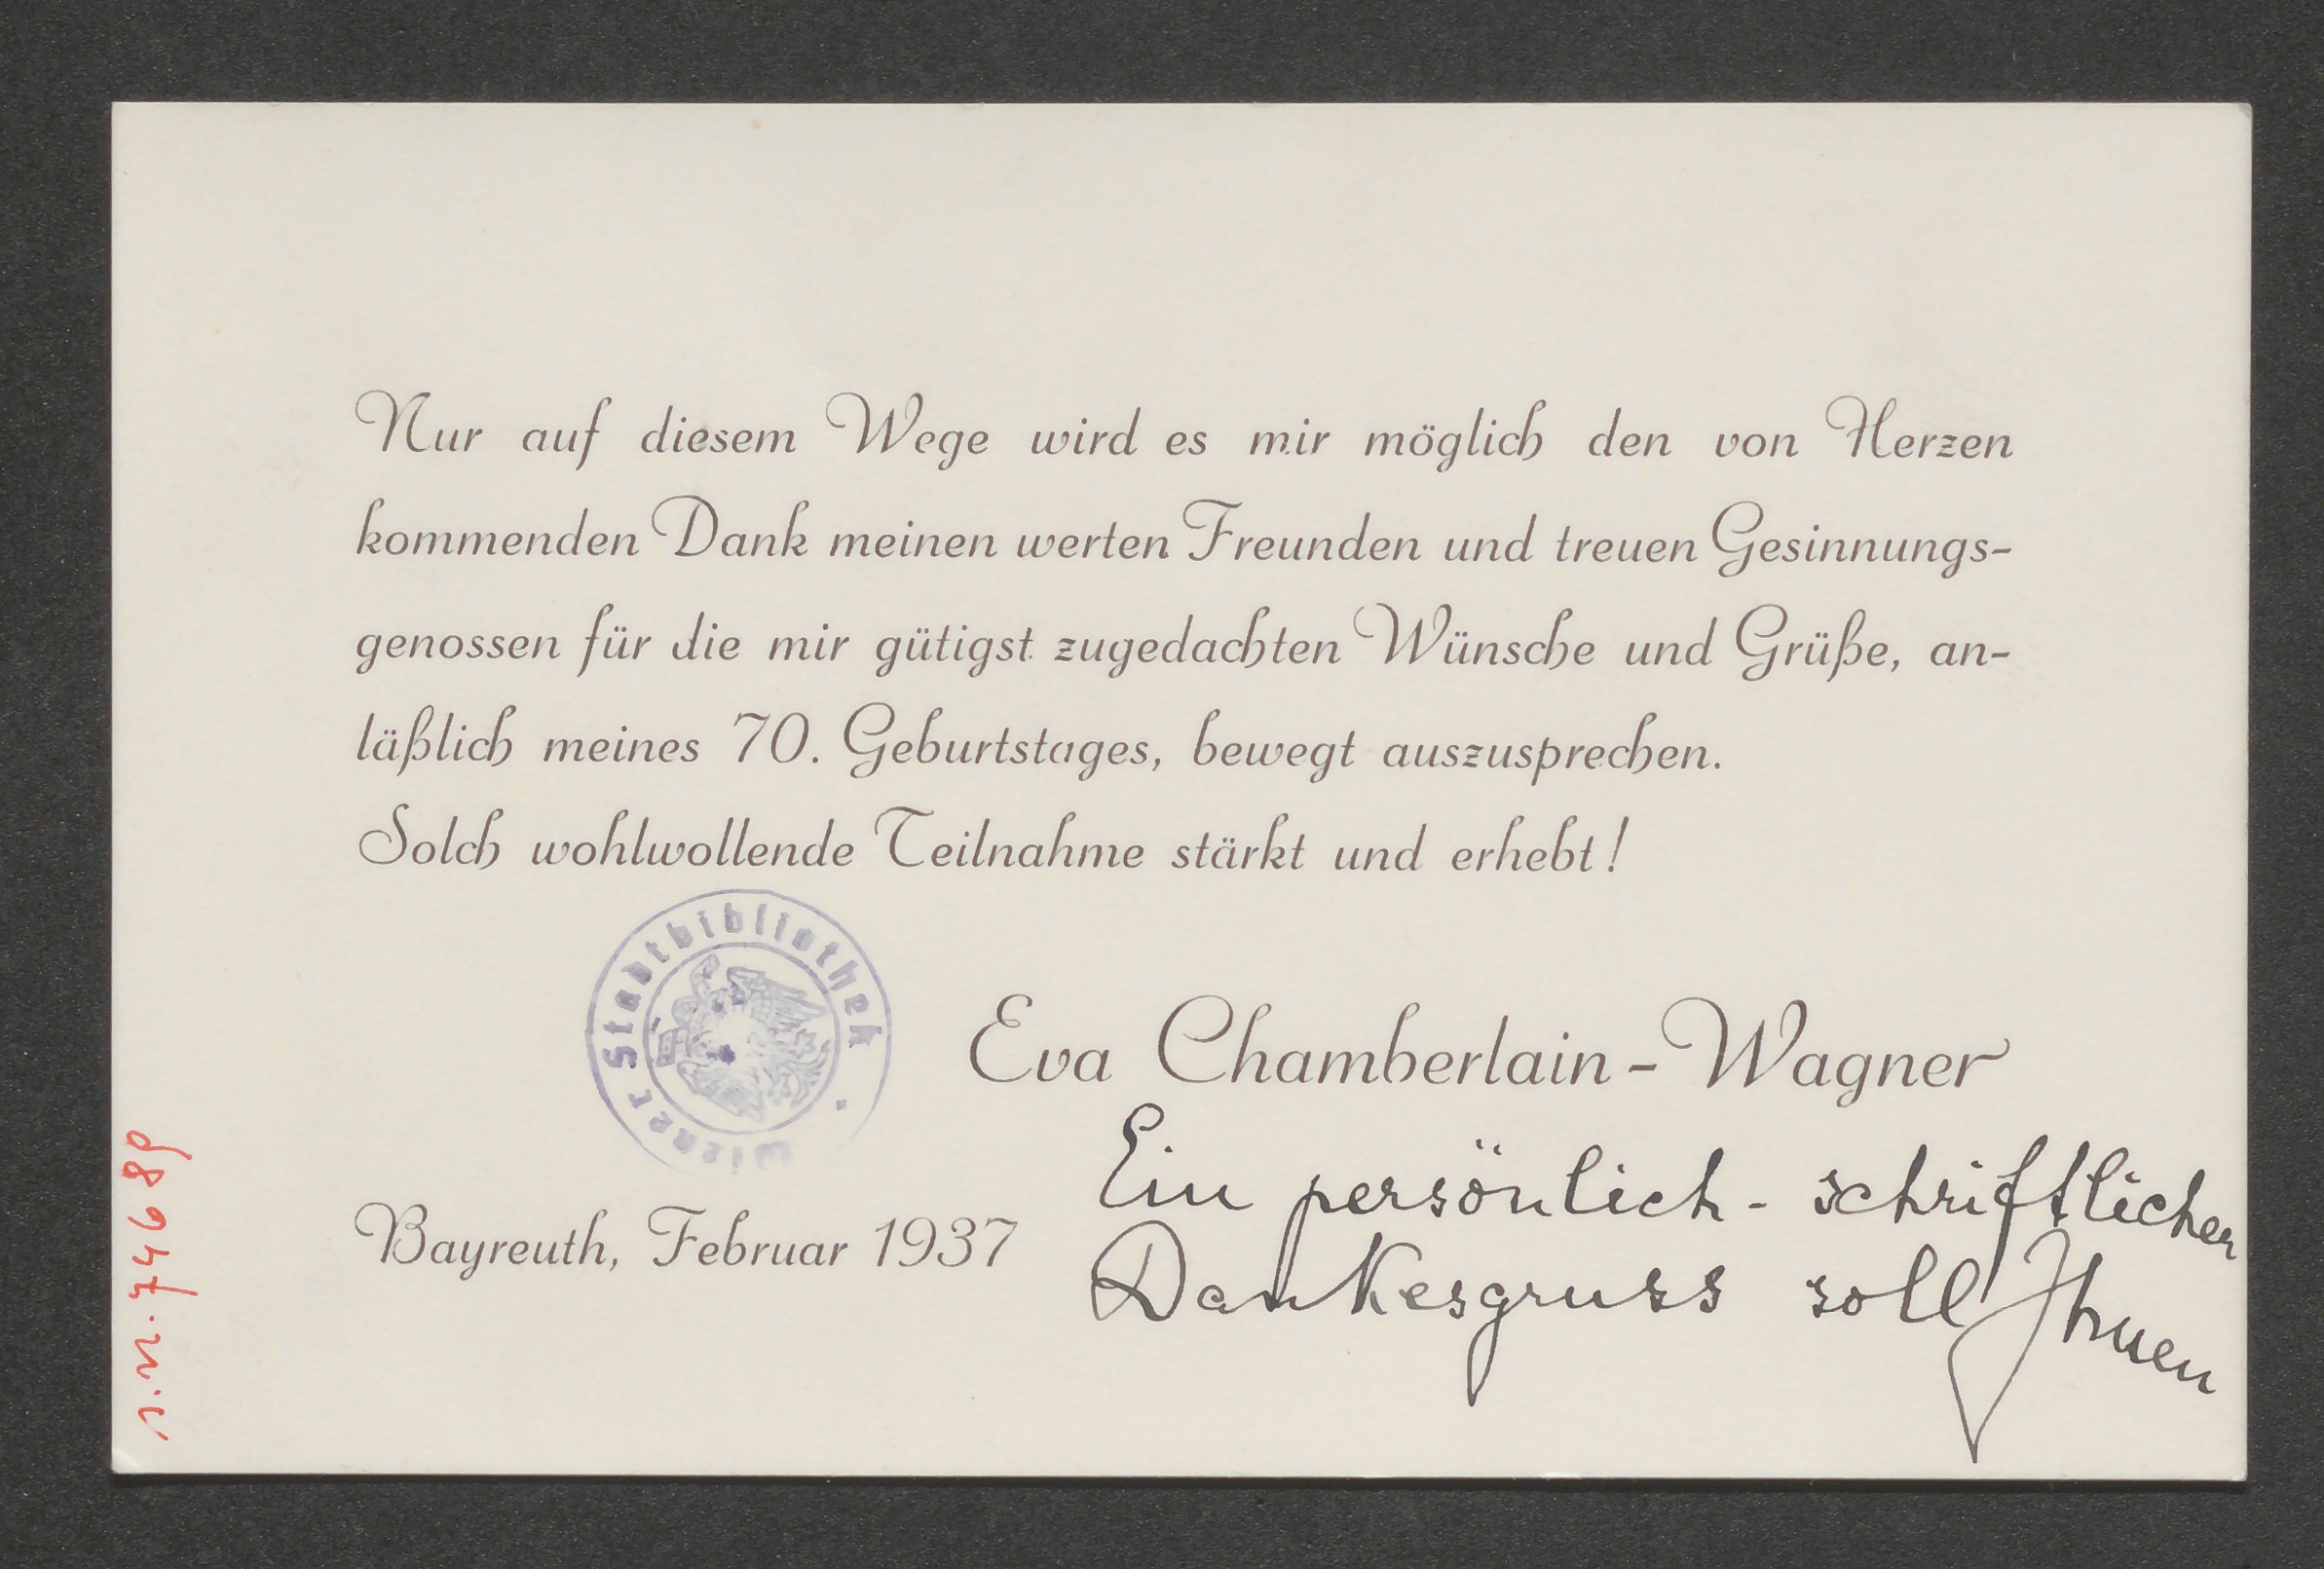 Nur auf diesem Wege wird es mir möglich den von Herzen
kommenden Dank meinen werten Freunden und treuen Gesinnungs-
genossen für die mir gütigst zugedachten Wünsche und Grüße, an-
läßlich meines 70. Geburtstages, bewegt auszusprechen.
Solch wohlwollende Teilnahme stärkt und erhebt!
Wiener Stadtbibliothek
Eva Chamberlain-Wagner
Ein persönlich- schriftlicher
Bayreuth, Februar 1937
Dankesgruss soll Ihnen